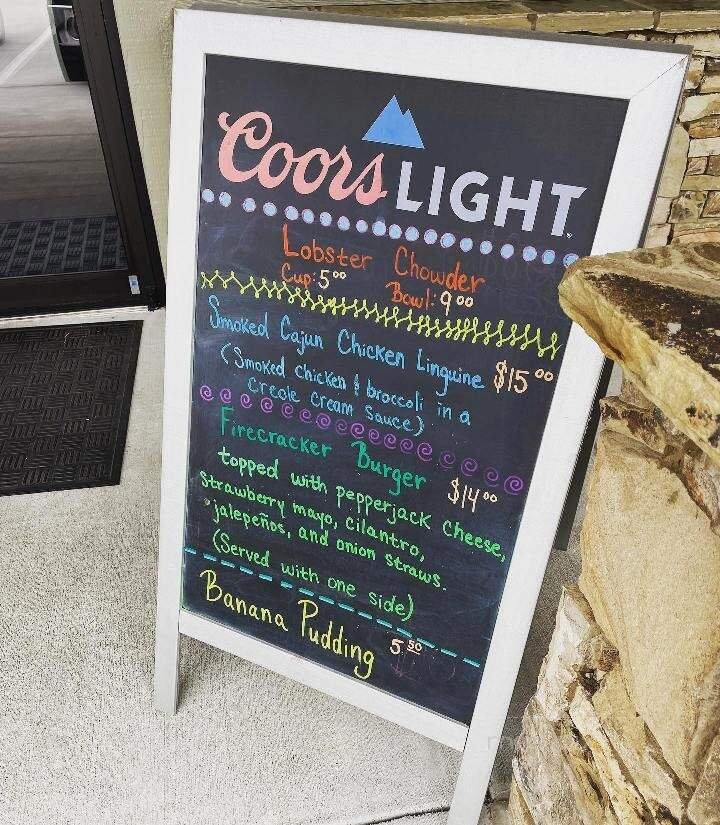 Coors LIGHT
Lobster Chowder
Cup: 5⁰⁰ Bowl: 9⁰⁰
Smoked Cajun Chicken Linguine $15⁰⁰
(Smoked chicken & broccoli in a
creole cream sauce)
Firecracker Burger $14⁰⁰
topped with pepperjack cheese,
strawberry mayo, cilantro,
jalepeños, and onion straws.
(Served with one side)
Banana Pudding 5⁵⁰